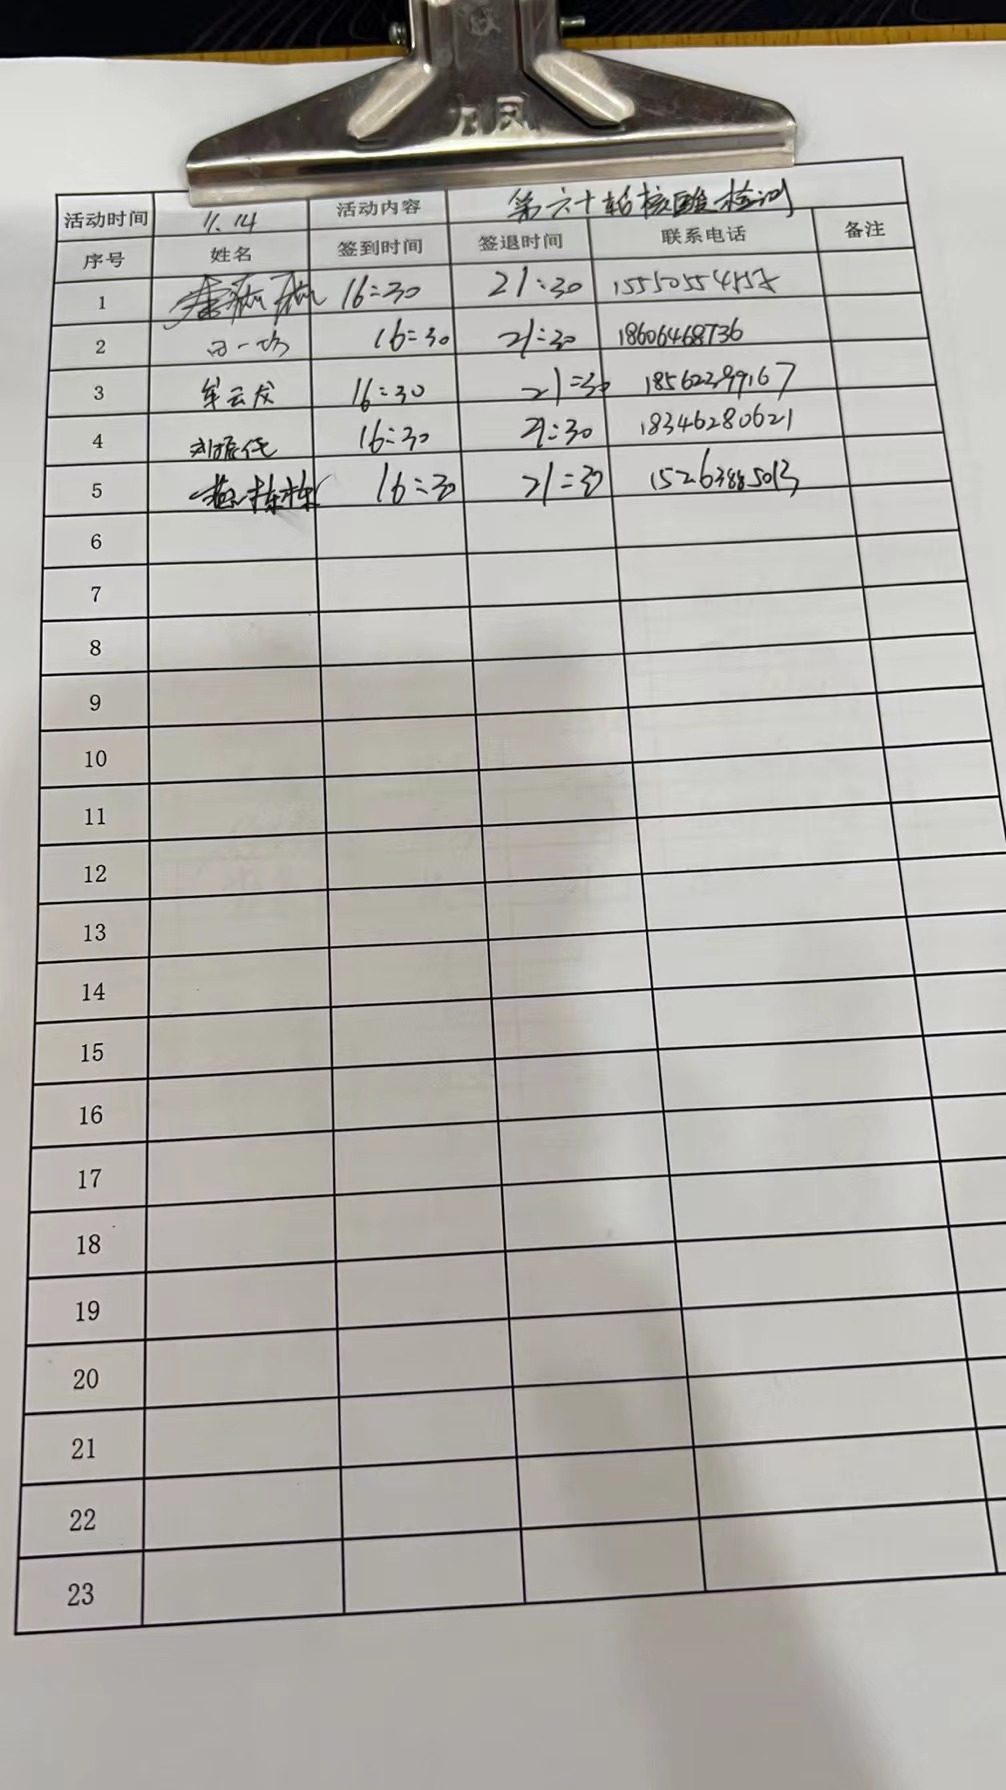 活动时间 11.14 活动内容 第六十轮核酸检测
序号 姓名 签到时间 签退时间 联系电话 备注
1 16:30 21:30
2 16:30 21:30 18606468736
3 16:30 21:30 18562399167
4 16:30 21:30 18346280621
5 16:30 21:30
6
7
8
9
10
11
12
13
14
15
16
17
18
19
20
21
22
23